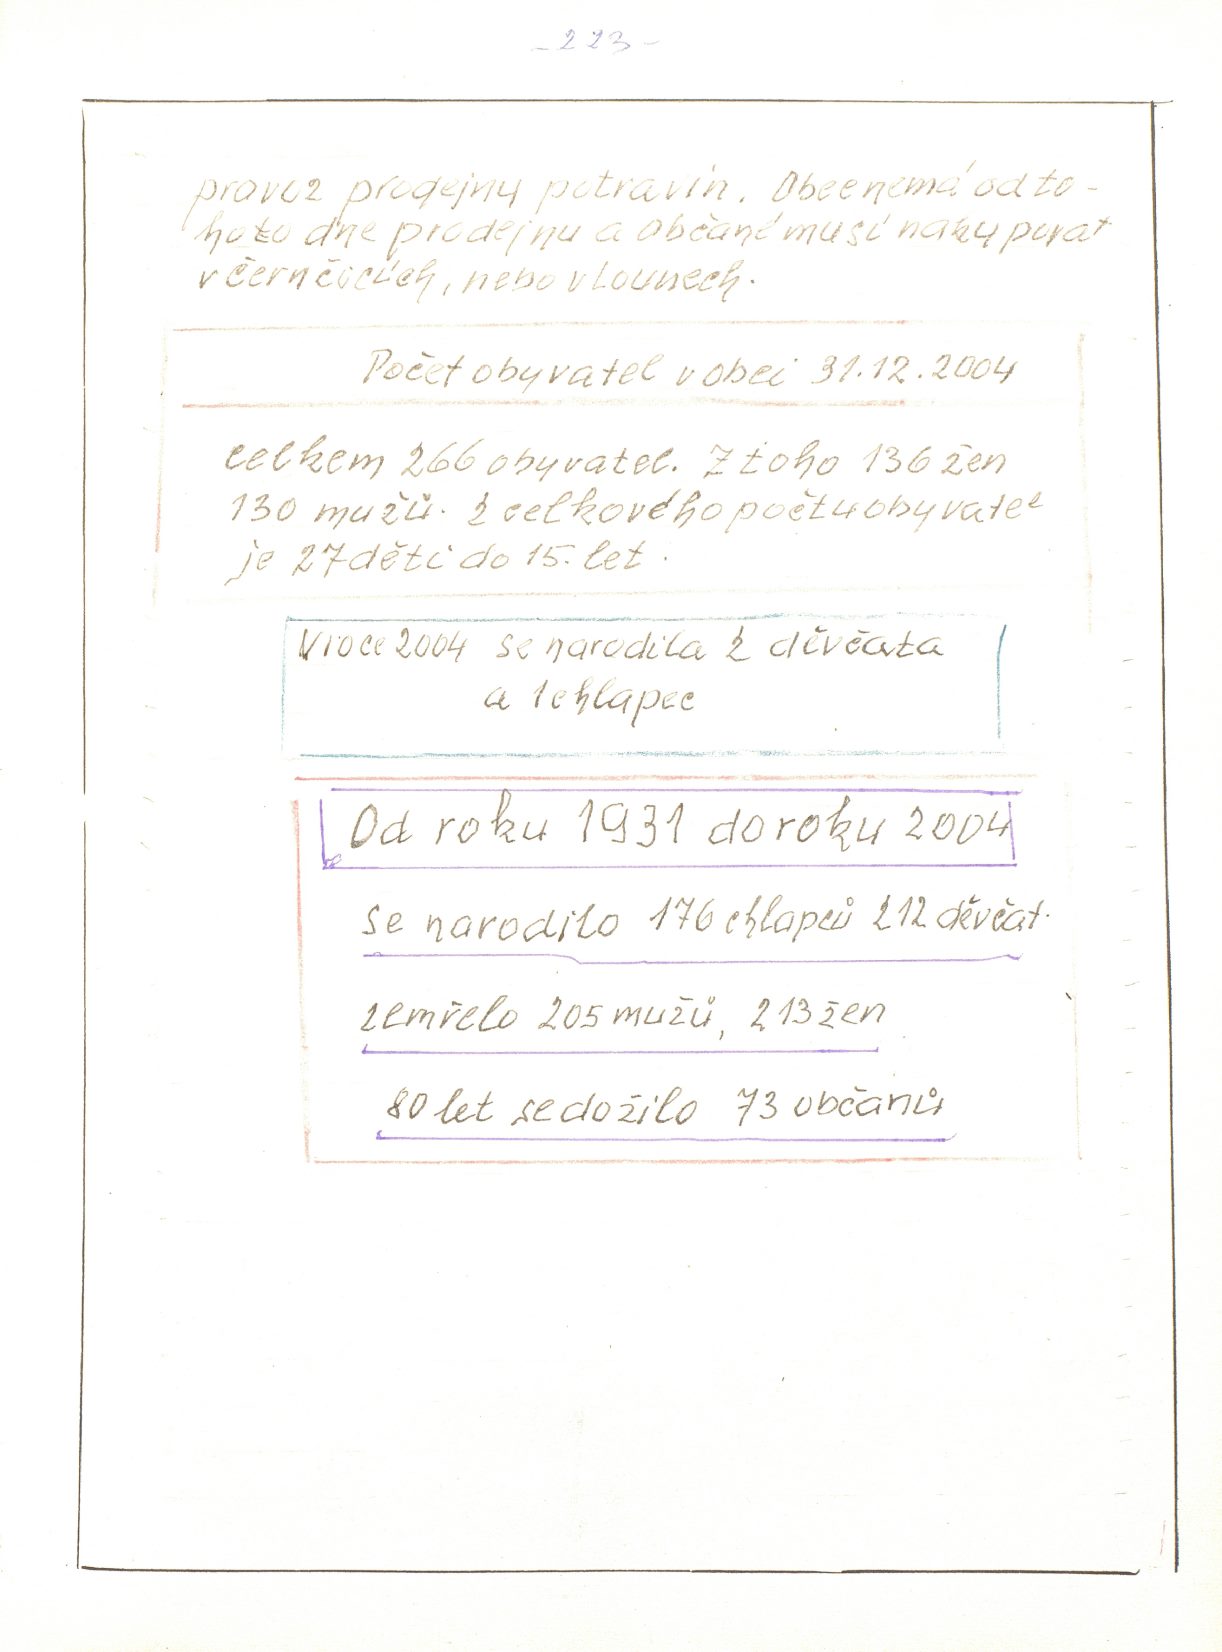 - 223 -
provoz prodejny potravin. Obec nemá od to-
hoto dne prodejnu a občané musí nakupovat
v černčicích, nebo v Lounech.
Počet obyvatel v obci 31.12.2004
celkem 266 obyvatel. Z toho 136 žen
130 mužů. Z celkového počtu obyvatel
je 27 dětí do 15. let.
V roce 2004 se narodila 2 děvčata
a 1 chlapec
Od roku 1931 do roku 2004
se narodilo 176 chlapců 212 děvčat.
zemřelo 205 mužů, 213 žen
80 let se dožilo 73 občanů